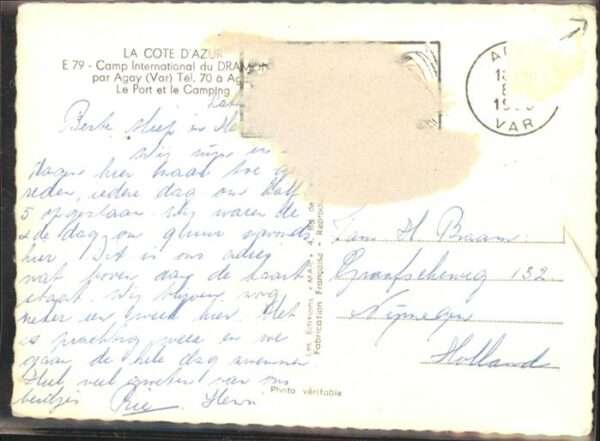 LA COTE D'AZUR
E 79 - Camp International du DRAMON
par Agay (Var) Tél. 70 à Ag
Le Port et le Camping
Beste
Wij zijn
dagen hier naar toe ge
reden, iedere dag om half
5 opgestaan. Wij waren de
2de dag om
hier. Dit is ons adres
wat boven aan de kaart
staat. Wij blijven nog
zeker een week hier. Het
is prachtig weer en we
gaan de hele dag zwemmen
Heel veel groeten van ons
beidjes Rie. Henri
Photo véritable
Fabrication Française - Reproduc
LES EDITIONS « MAR »
VAR
Fam. H. Baam
Graafseweg 132.
Nijmegen
Holland